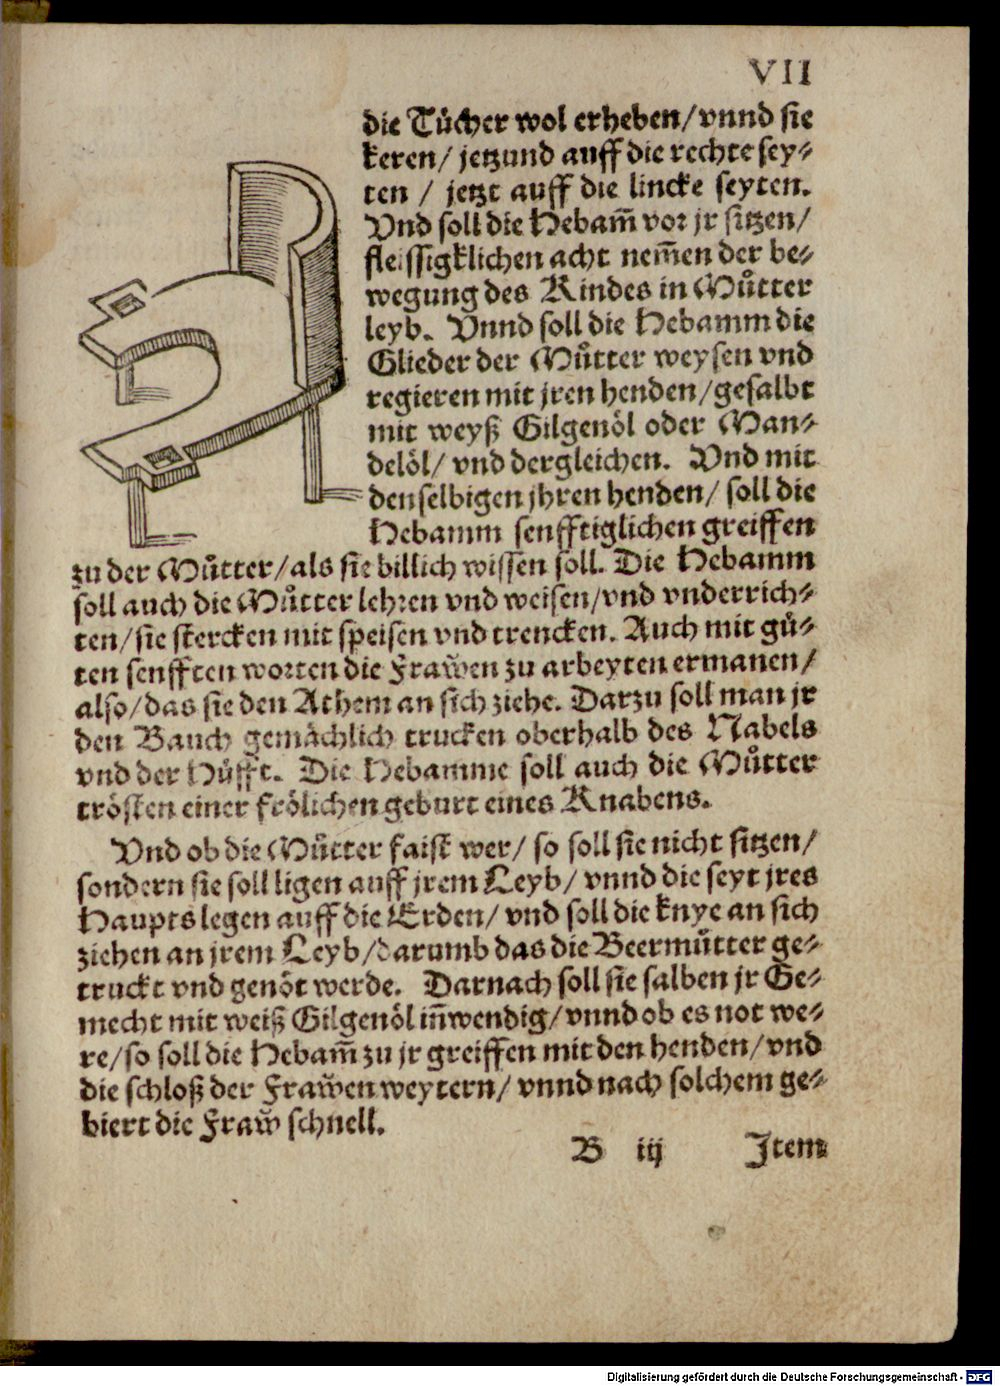 VII
die Tücher wol erheben/ vnnd sie
keren/ jetzund auff die rechte sey⸗
ten / jetzt auff die lincke seyten.
Vnd soll die Hebam̄ vor jr sitzen/
fleissigklichen acht nem̄en der be⸗
wegung des Kindes in Můtter
leyb. Vnnd soll die Hebamm die
Glieder der Můtter weysen vnd
regieren mit jren henden/ gesalbt
mit weyß Gilgenöl oder Man⸗
delöl/ vnd dergleichen. Vnd mit
denselbigen jhren henden/ soll die
Hebamm senfftiglichen greiffen
zu der Můtter/ als sie billich wissen soll. Die Hebamm
soll auch die Můtter lehren vnd weisen/ vnd vnderrich⸗
ten/ sie stercken mit speisen vnd trencken. Auch mit gů⸗
ten senfften worten die Fraw̃en zu arbeyten ermanen/
also/ das sie den Athem an sich ziehe. Darzu soll man jr
den Bauch gemächlich trucken oberhalb des Nabels
vnd der Hüfft. Die Hebamme soll auch die Můtter
trösten einer frölichen geburt eines Knabens.
Vnd ob die Můtter faist wer/ so soll sie nicht sitzen/
sondern sie soll ligen auff jrem Leyb/ vnnd die seyt jres
Haupts legen auff die Erden/ vnd soll die knye an sich
ziehen an jrem Leyb/ darumb das die Beermůtter ge⸗
truckt vnd genöt werde. Darnach soll sie salben jr Ge⸗
mecht mit weiß Gilgenöl in̄wendig/ vnnd ob es not we⸗
re/ so soll die Hebam̄ zu jr greiffen mit den henden/ vnd
die schloß der Fraw̃en weytern/ vnnd nach solchem ge⸗
biert die Fraw̃ schnell.
B iij Item
Digitalisierung gefördert durch die Deutsche Forschungsgemeinschaft - DFG